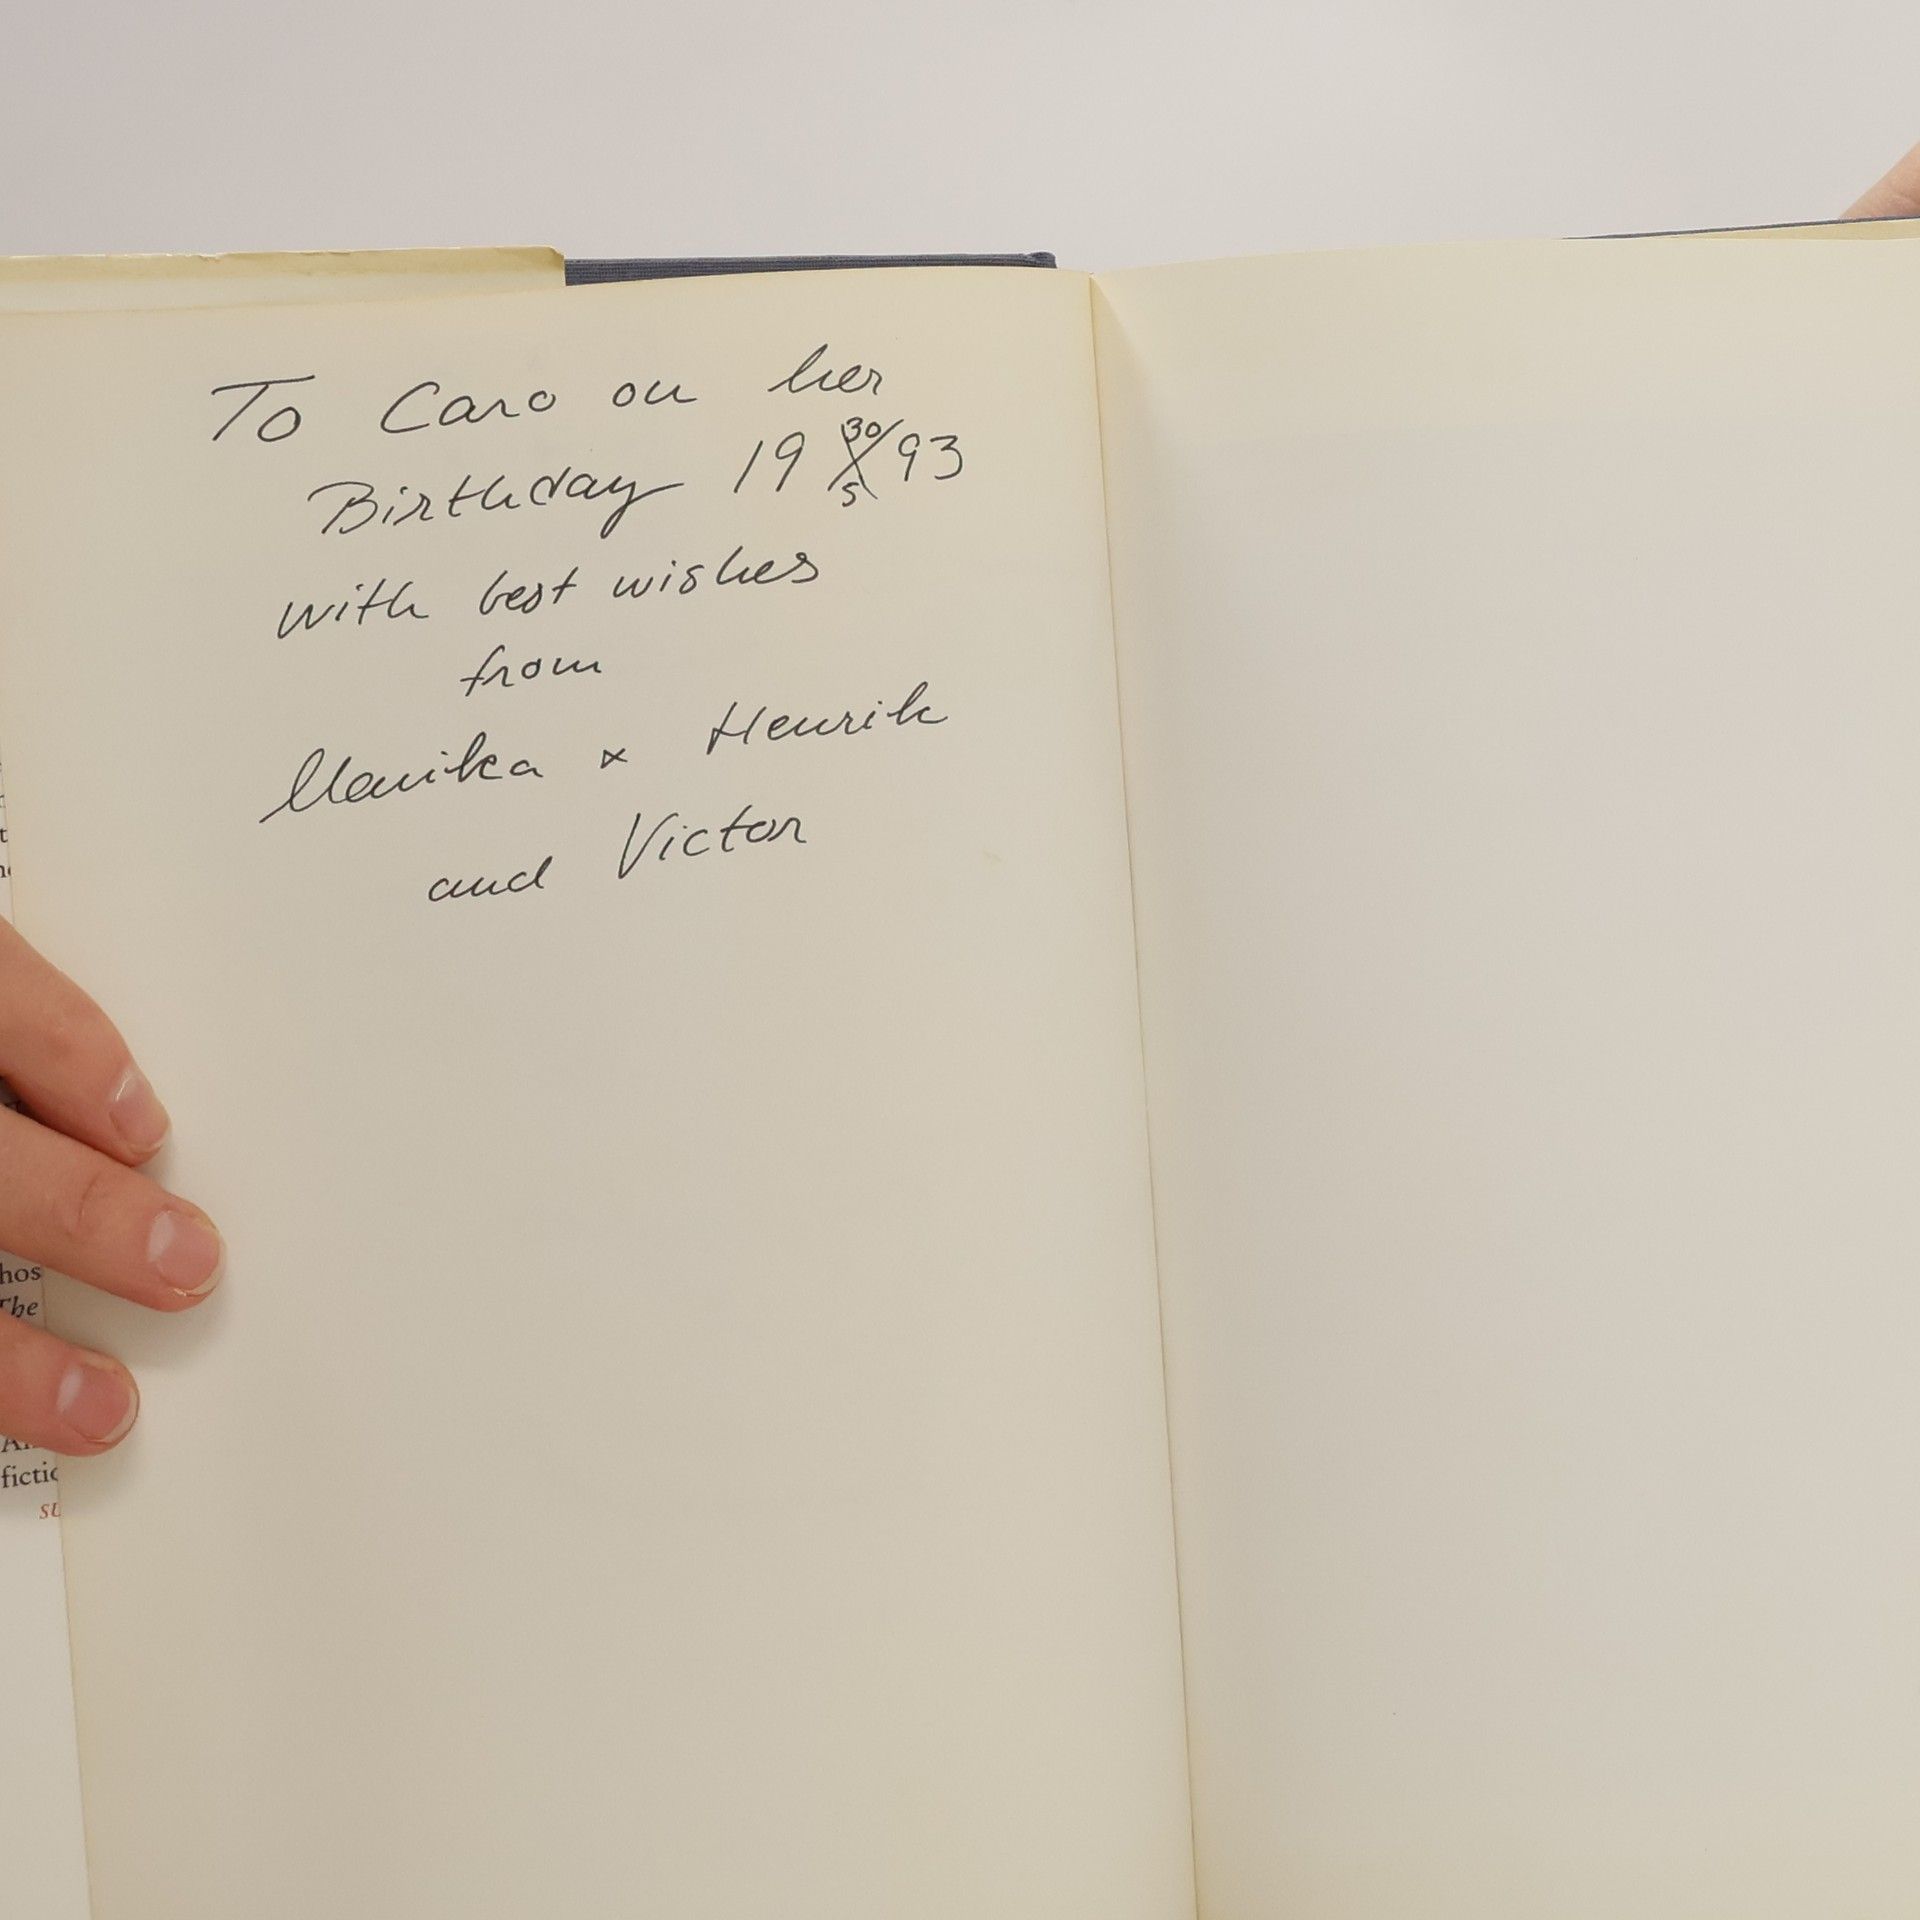 To Caro on her
Birthday 19 30/5 93
with best wishes
from
Marika & Henrik
and Victor
hos
The
fictio